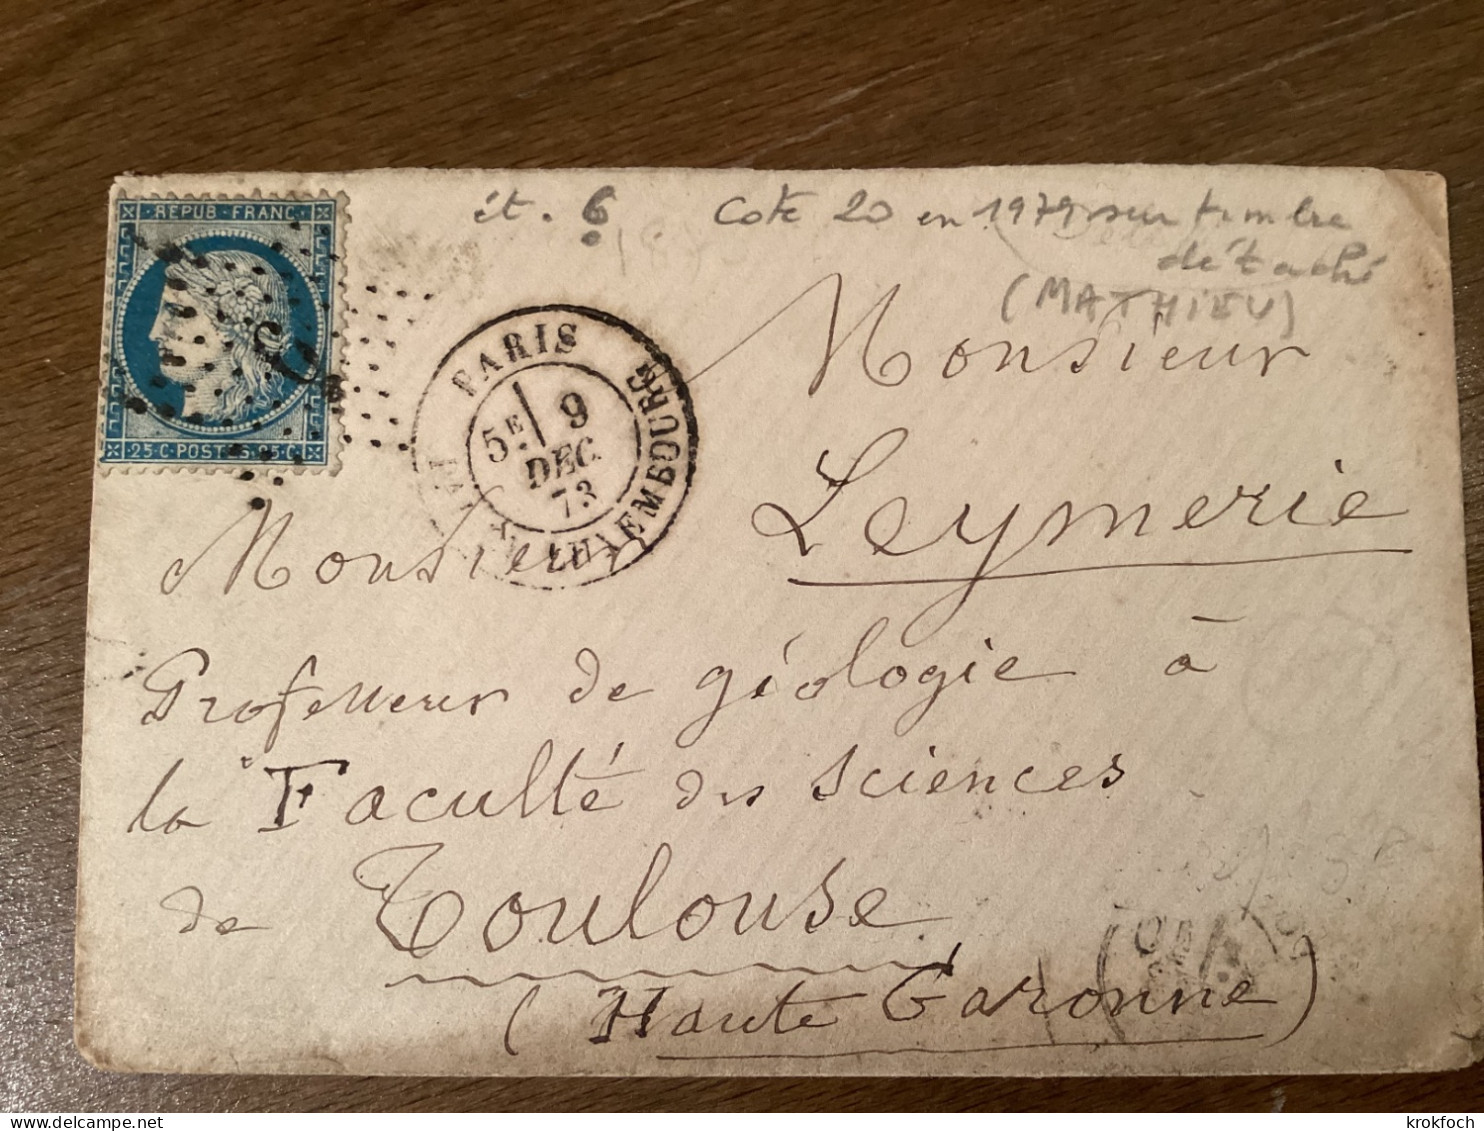 ét. 6 Cote 20 en 1979 sur timbre
détaché
(MATHIEU)
REPUB. FRANC.
25 C. POSTES 25 C.
PARIS
5E 9
DEC.
73
LUXEMBOURG
Monsieur
Leymerie
Monsieur
Professeur de géologie à
la Faculté des Sciences
de Toulouse
(Haute Garonne)
krokfoch